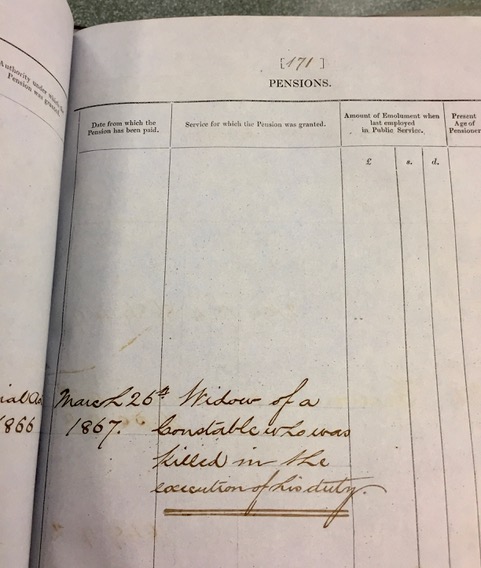 [171]
PENSIONS.
Authority under which the
Pension was granted.
Date from which the
Pension has been paid.
Service for which the Pension was granted.
Amount of Emolument when
last employed
in Public Service.
Present
Age of
Pensioner
£ s. d.
March 26th Widow of a
1866 1867. Constable who was
killed in the
execution of his duty.